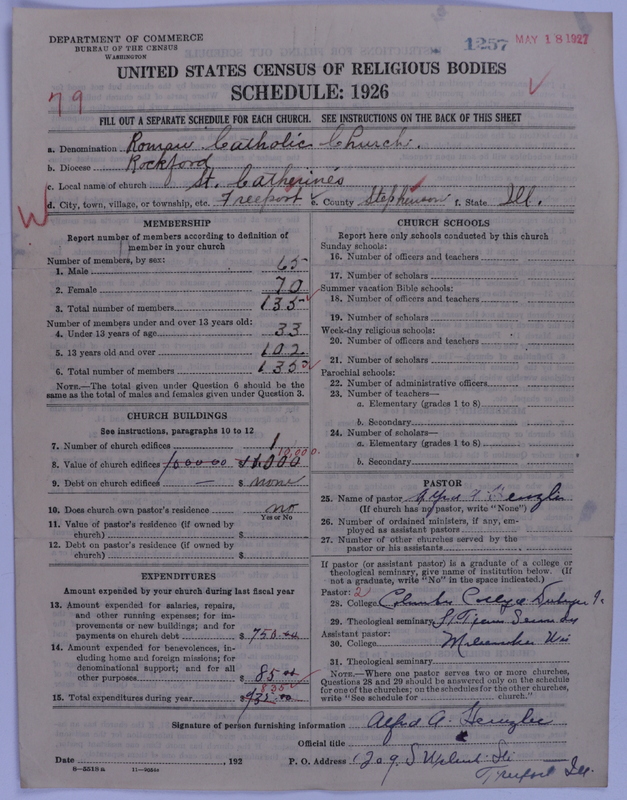 DEPARTMENT OF COMMERCE
BUREAU OF THE CENSUS
WASHINGTON
1257 MAY 18 1927
UNITED STATES CENSUS OF RELIGIOUS BODIES
SCHEDULE: 1926
79
FILL OUT A SEPARATE SCHEDULE FOR EACH CHURCH. SEE INSTRUCTIONS ON THE BACK OF THIS SHEET
a. Denomination Roman Catholic Church.
b. Diocese Rockford
c. Local name of church St. Catherines
W d. City, town, village, or township, etc. Freeport e. County Stephenson f. State Ill.
MEMBERSHIP
Report number of members according to definition of
member in your church
Number of members, by sex:
1. Male 65
2. Female 70
3. Total number of members 135
Number of members under and over 13 years old:
4. Under 13 years of age 33
5. 13 years old and over 102
6. Total number of members 135
NOTE.—The total given under Question 6 should be the
same as the total of males and females given under Question 3.
CHURCH BUILDINGS
See instructions, paragraphs 10 to 12
7. Number of church edifices 1
10,000.
8. Value of church edifices $
9. Debt on church edifices — $ none
10. Does church own pastor's residence no
Yes or No
11. Value of pastor's residence (if owned by
church) $
12. Debt on pastor's residence (if owned by
church) $
EXPENDITURES
Amount expended by your church during last fiscal year
13. Amount expended for salaries, repairs,
and other running expenses; for im-
provements or new buildings; and for
payments on church debt $ 750.00
14. Amount expended for benevolences, in-
cluding home and foreign missions; for
denominational support; and for all
other purposes $ 85.00
835
15. Total expenditures during year $
CHURCH SCHOOLS
Report here only schools conducted by this church
Sunday schools:
16. Number of officers and teachers
17. Number of scholars
Summer vacation Bible schools:
18. Number of officers and teachers
19. Number of scholars
Week-day religious schools:
20. Number of officers and teachers
21. Number of scholars
Parochial schools:
22. Number of administrative officers
23. Number of teachers—
a. Elementary (grades 1 to 8)
b. Secondary
24. Number of scholars—
a. Elementary (grades 1 to 8)
b. Secondary
PASTOR
25. Name of pastor Alfred
(If church has no pastor, write "None")
26. Number of ordained ministers, if any, em-
ployed as assistant pastors
27. Number of other churches served by the
pastor or his assistants
If pastor (or assistant pastor) is a graduate of a college or
theological seminary, give name of institution below. (If
not a graduate, write "No" in the space indicated.)
Pastor: 2
28. College Columbia College Dubuque Ia
29. Theological seminary St. Francis Seminary
Assistant pastor:
30. College Milwaukee Wis
31. Theological seminary
NOTE.—Where one pastor serves two or more churches,
Questions 28 and 29 should be answered only on the schedule
for one of the churches; on the schedules for the other churches,
write "See schedule for church."
Signature of person furnishing information Alfred A.
Official title
Date , 192 P. O. Address 1209 S Walnut
8—5518a 11—9054a Freeport Ill.